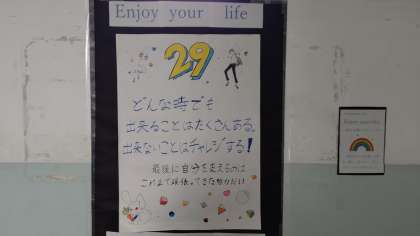 Enjoy your life
29
どんな時でも
出来ることはたくさんある。
出来ないことはチャレンジする!
最後に自分を支えるのは
これまで頑張ってきた努力だけ